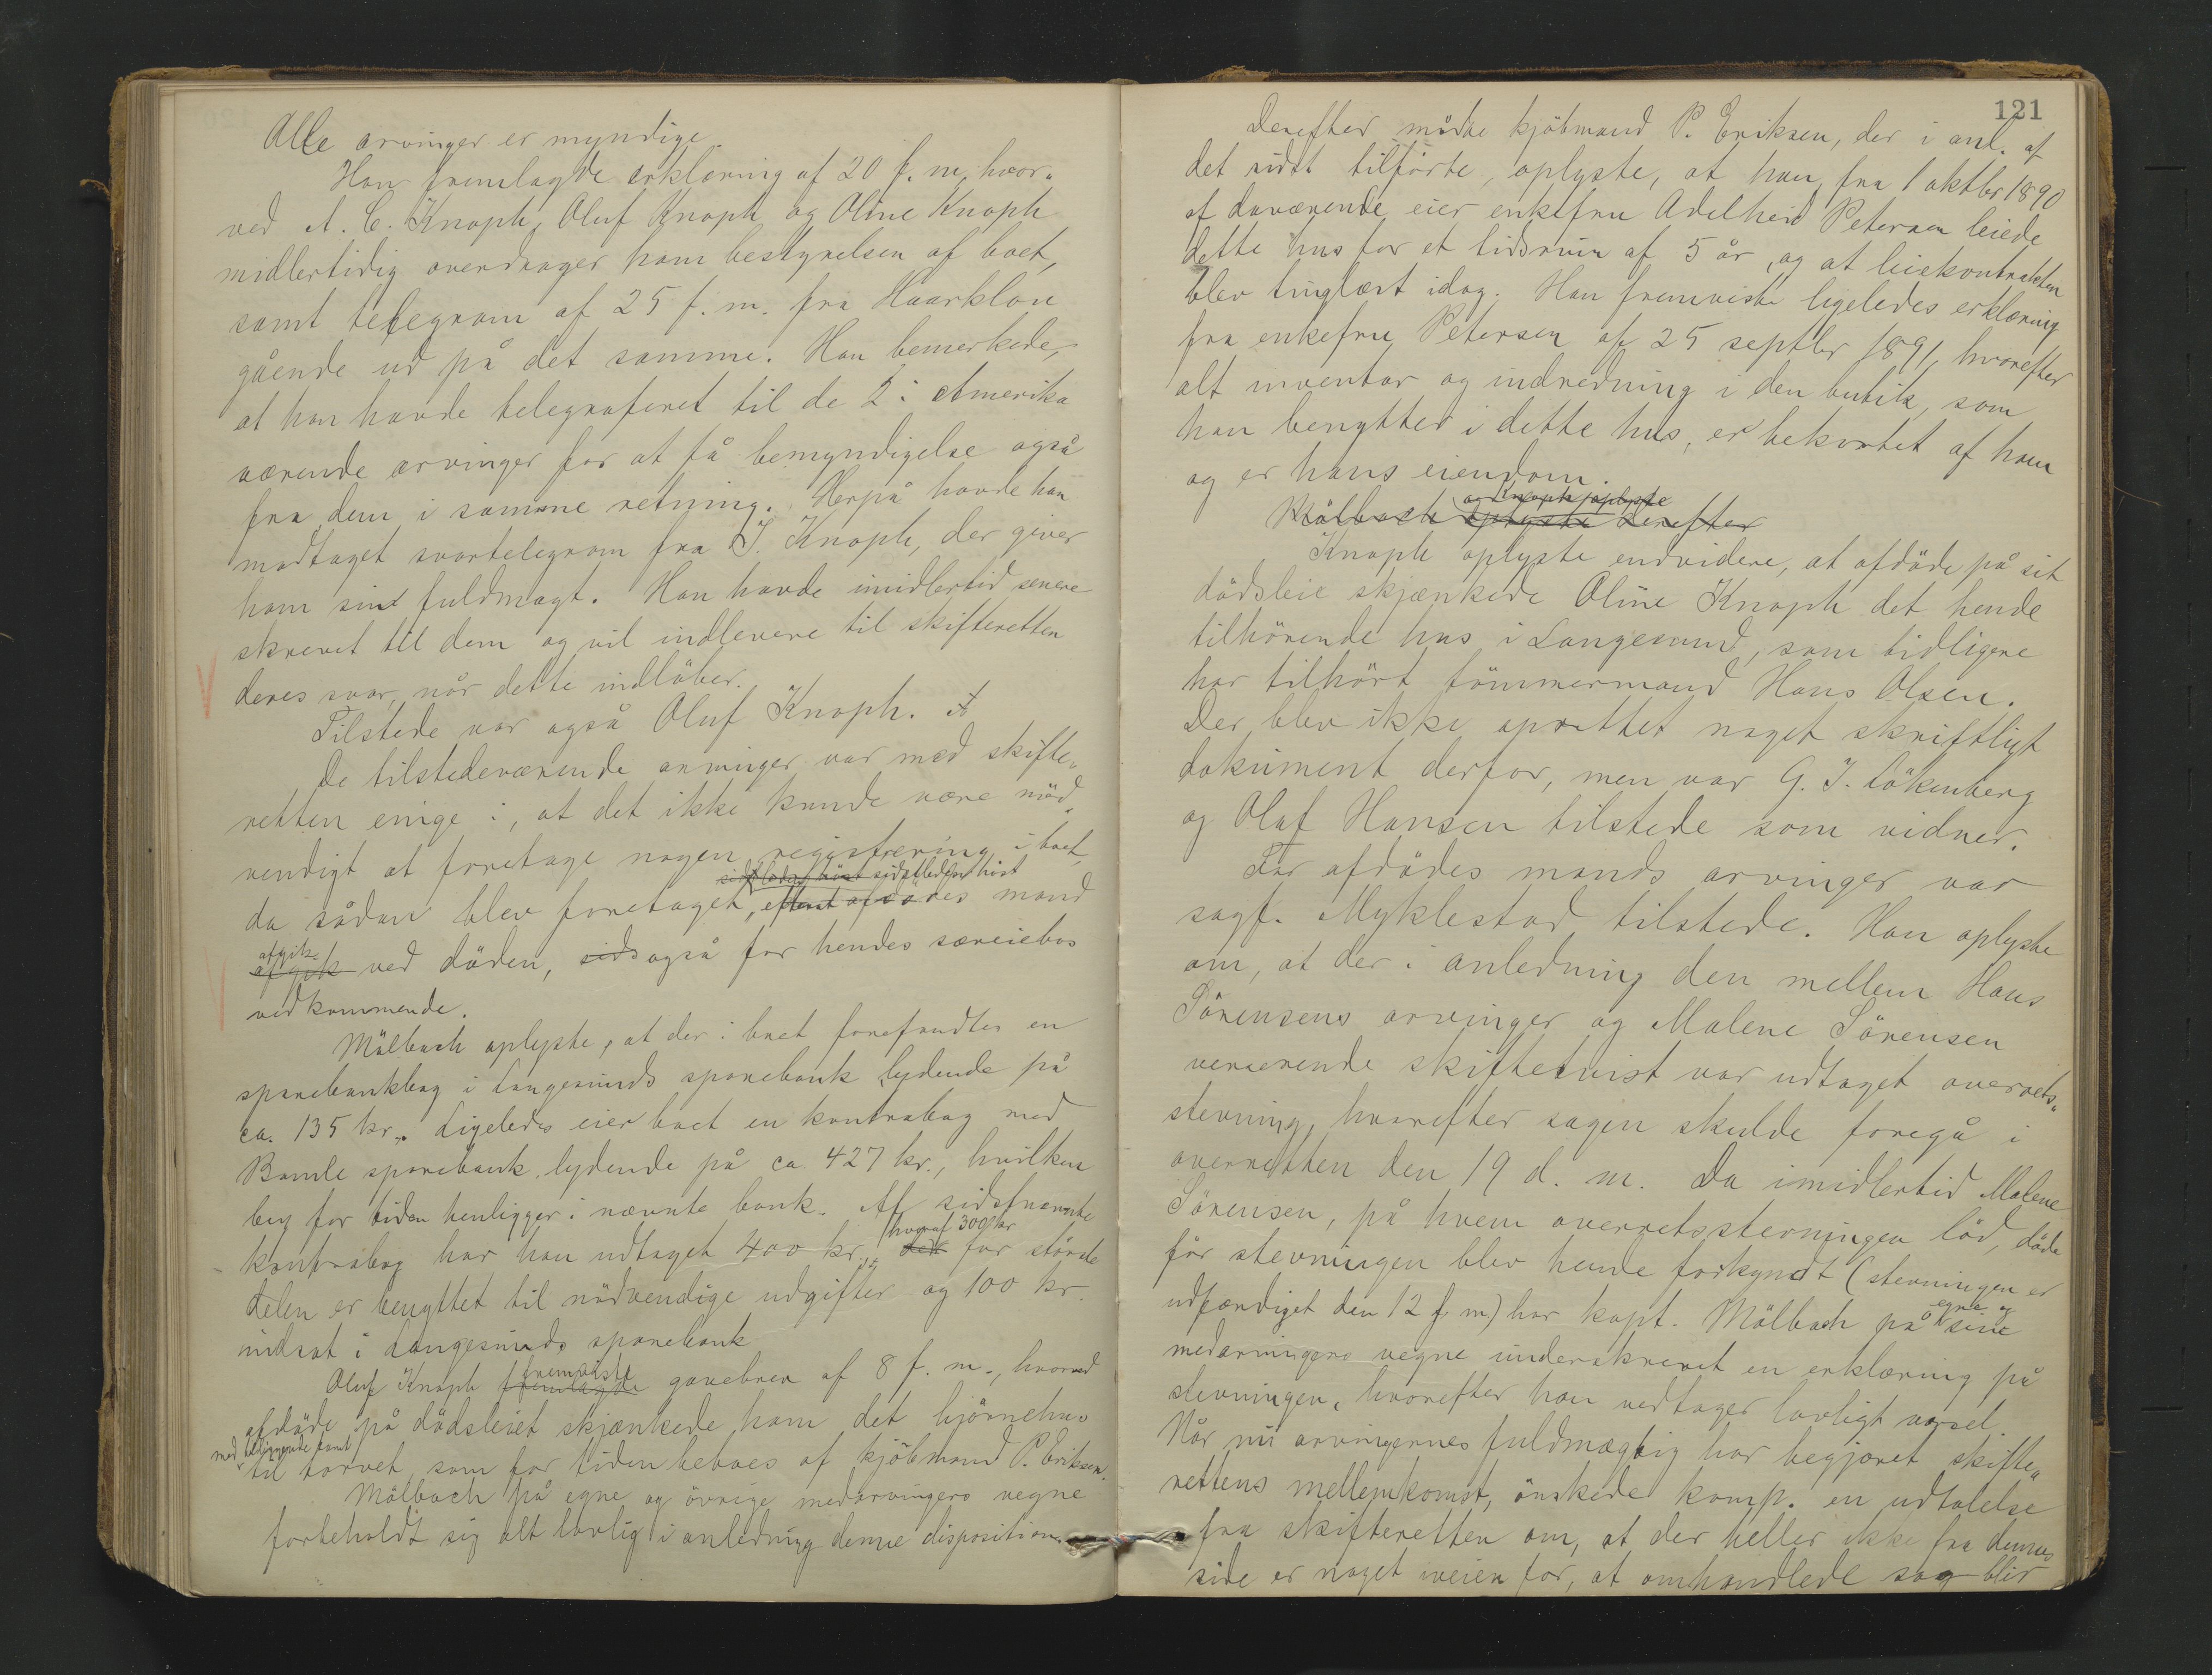 Alle arvinger er myndige.
Han fremlagde erklæring af 20 f. m. hvor-
ved A. C. Knoph, Oluf Knoph og Oline Knoph
midlertidig overdrager ham bestyrelsen af boet,
samt telegram af 25 f. m. fra Haarklou
gående ud på det samme. Han bemerkede,
at han havde telegraferet til de 2 i Amerika
værende arvinger for at få bemyndigelse også
fra dem i samme retning. Herpå havde han
modtaget svartelegram fra J. Knoph, der giver
ham sin fuldmagt. Han havde imidlertid senere
skrevet til dem og vil indlevere til skifteretten
deres svar, når dette indløber.
Tilstede var også Oluf Knoph.
De tilstedeværende arvinger var med skifte-
retten enige i, at det ikke kunde være nød-
vendigt at foretage nogen registrering i boet,
sidstleden høst
da sådan blev foretaget, efterat afdødes mand
afgik
afgik ved døden, også for hendes særeiebos
vedkommende.
Mølbach oplyste, at der i boet forefandtes en
sparebankbog i Langesunds sparebank lydende på
ca. 135 kr. Ligeledes eier boet en kontrabog med
Bamle sparebank lydende på ca 427 kr., hvilken
bog for tiden henligger i nævnte bank. Af sidstnævnte
hvoraf 300 kr
kontrabog har han udtaget 400 kr., for største
delen er benyttet til nødvendige udgifter og 100 kr.
indsat i Langesunds sparebank
fremviste
Oluf Knoph fremlagde gavebrev af 8 f. m., hvorved
afdøde på dødsleiet skjænkede ham det hjørnehus
med tilliggende tomt
til torvet, som for tiden beboes af kjøbmand P. Eriksen.
Mølbach på egne og øvrige medarvingers vegne
forbeholdt sig alt lovlig i anledning denne disposition.
121
Derefter mødte kjøbmand P. Eriksen, der i anl. af
det sidst tilførte, oplyste, at han fra 1 oktbr 1890
af daværende eier enkefru Adelheid Petersen leiede
dette hus for et tidsrum af 5 år, og at leiekontrakten
blev tinglæst idag. Han fremviste ligeledes erklæring
fra enkefru Petersen af 25 septbr 1891, hvorefter
alt inventar og indredning i den butik, som
han benytter i dette hus, er bekostet af ham
og er hans eiendom.
og Knoph oplyste
Mølbach oplyste derefter
Knoph oplyste endvidere, at afdøde på sit
dødsleie skjænkede Oline Knoph det hende
tilhørende hus i Langesund, som tidligere
har tilhørt tømmermand Hans Olsen.
Der blev ikke oprettet noget skriftligt
dokument derfor, men var G. J. Løkenberg
og Olaf Hansen tilstede som vidner.
For afdødes mands arvinger var
sagf. Myklestad tilstede. Han oplyste
om, at der i anledning den mellem Hans
Sörensens arvinger og Malene Sörensen
verserende skiftetvist var udtaget overrets-
stevning, hvorefter sagen skulde foregå i
overretten den 19 d. m. Da imidlertid Malene
Sörensen, på hvem overretsstevningen lød, døde
før stevningen blev hende forkyndt (stevningen er
egne og
udfærdiget den 12 f. m) har kapt. Mølbach på sine
medarvingers vegne underskrevet en erklæring på
stevningen, hvorefter han vedtager lovligt varsel.
Når nu arvingernes fuldmægtig har begjæret skifte-
rettens mellemkomst, ønskede komp. en udtalelse
fra skifteretten om, at der heller ikke fra dennes
side er noget iveien for, at omhandlede sag blir